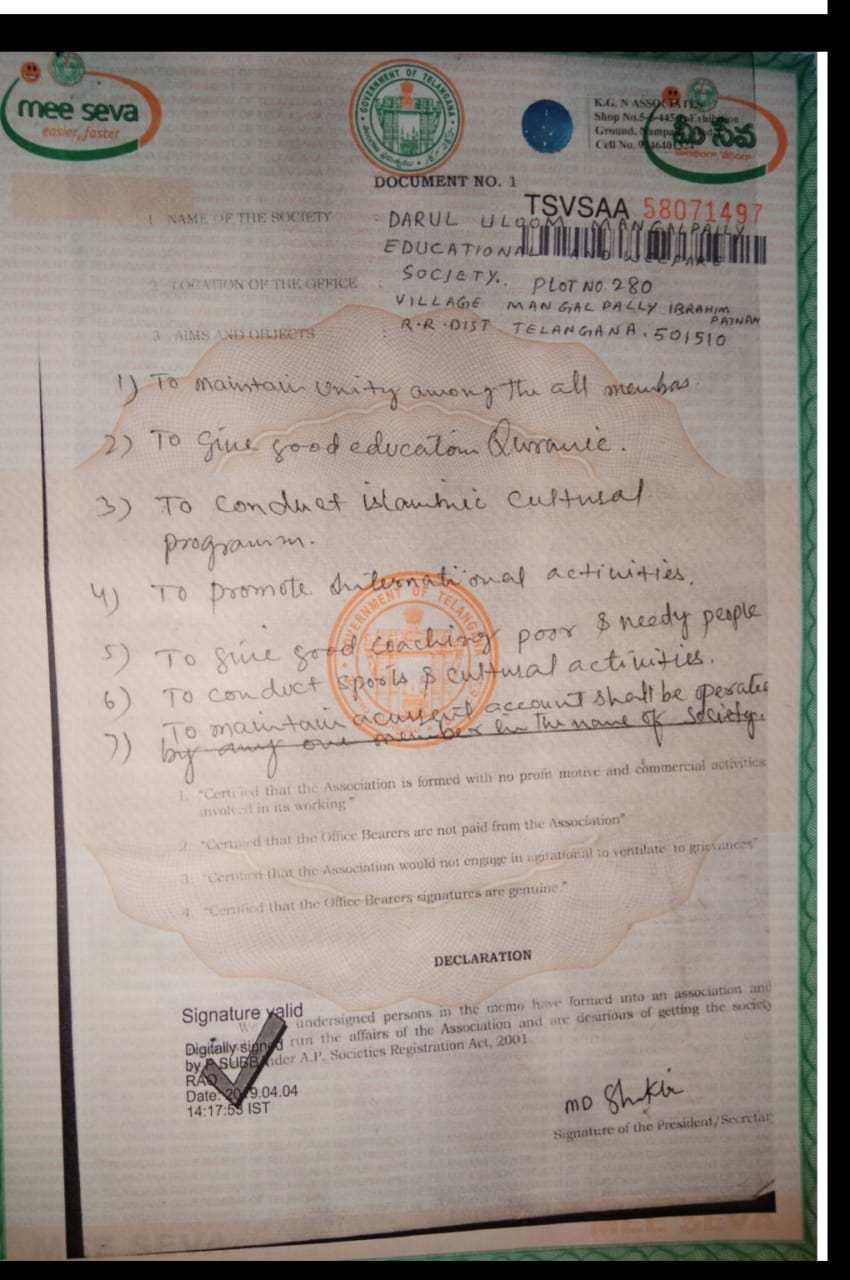 mee seva
easier, faster
GOVERNMENT OF TELANGANA
K.G. N ASSOCIATES
Shop No.5-
Ground,
Cell No.
మీ సేవ
DOCUMENT NO. 1
TSVSAA 58071497
1 NAME OF THE SOCIETY : DARUL ULOOM MANGALPALLY
EDUCATIONAL AND WELFARE
SOCIETY.. PLOT NO. 280
2. LOCATION OF THE OFFICE :
VILLAGE MANGALPALLY IBRAHIM
PATNAM
3. AIMS AND OBJECTS : R.R.DIST TELANGANA. 501510
1) To maintain unity among the all membas.
2) To give good education Quranic.
3) To conduct islamic cultural
programm.
4) To promote international activities.
5) To give good coaching poor & needy people
6) To conduct sports & cultural activities.
7) To maintain account shall be operated
by any one member in the name of society.
1. "Certified that the Association is formed with no profit motive and commercial activities
involved in its working"
2. "Certified that the Office Bearers are not paid from the Association"
3. "Certified that the Association would not engage in agitational to ventilate to grievances"
4. "Certified that the Office Bearers signatures are genuine."
GOVERNMENT OF TELANGANA
DECLARATION
Signature valid
We undersigned persons in the memo have formed into an association and
run the affairs of the Association and are desirious of getting the society
under A.P. Societies Registration Act, 2001
Digitally signed
by SUBBA
RAO
Date: 2019.04.04
14:17:53 IST
MD Shakir
Signature of the President/Secretar
MEE SEVA
MEE SEVA